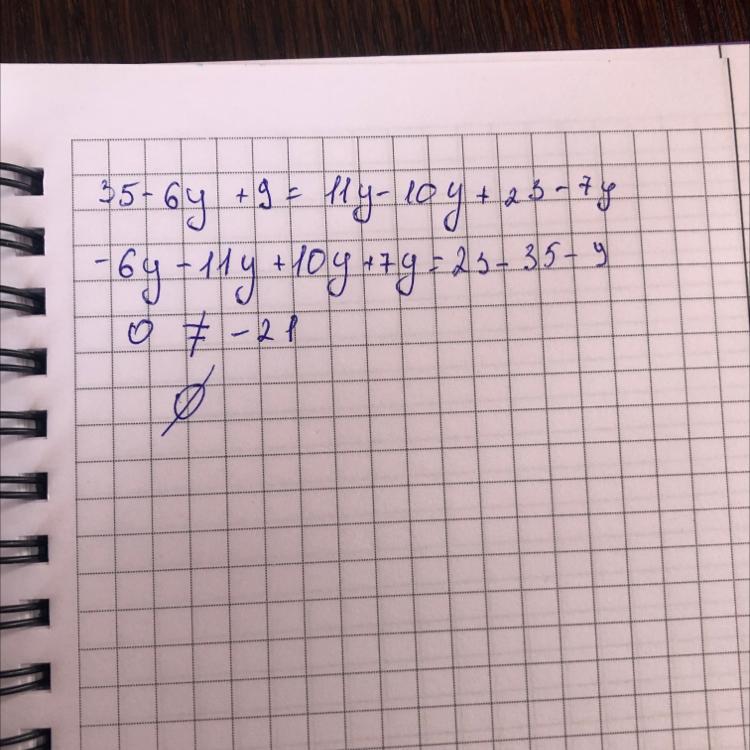 35 - 6y + 9 = 11y - 10y + 23 - 7y
-6y - 11y + 10y + 7y = 23 - 35 - 9
0 ≠ -21
∅